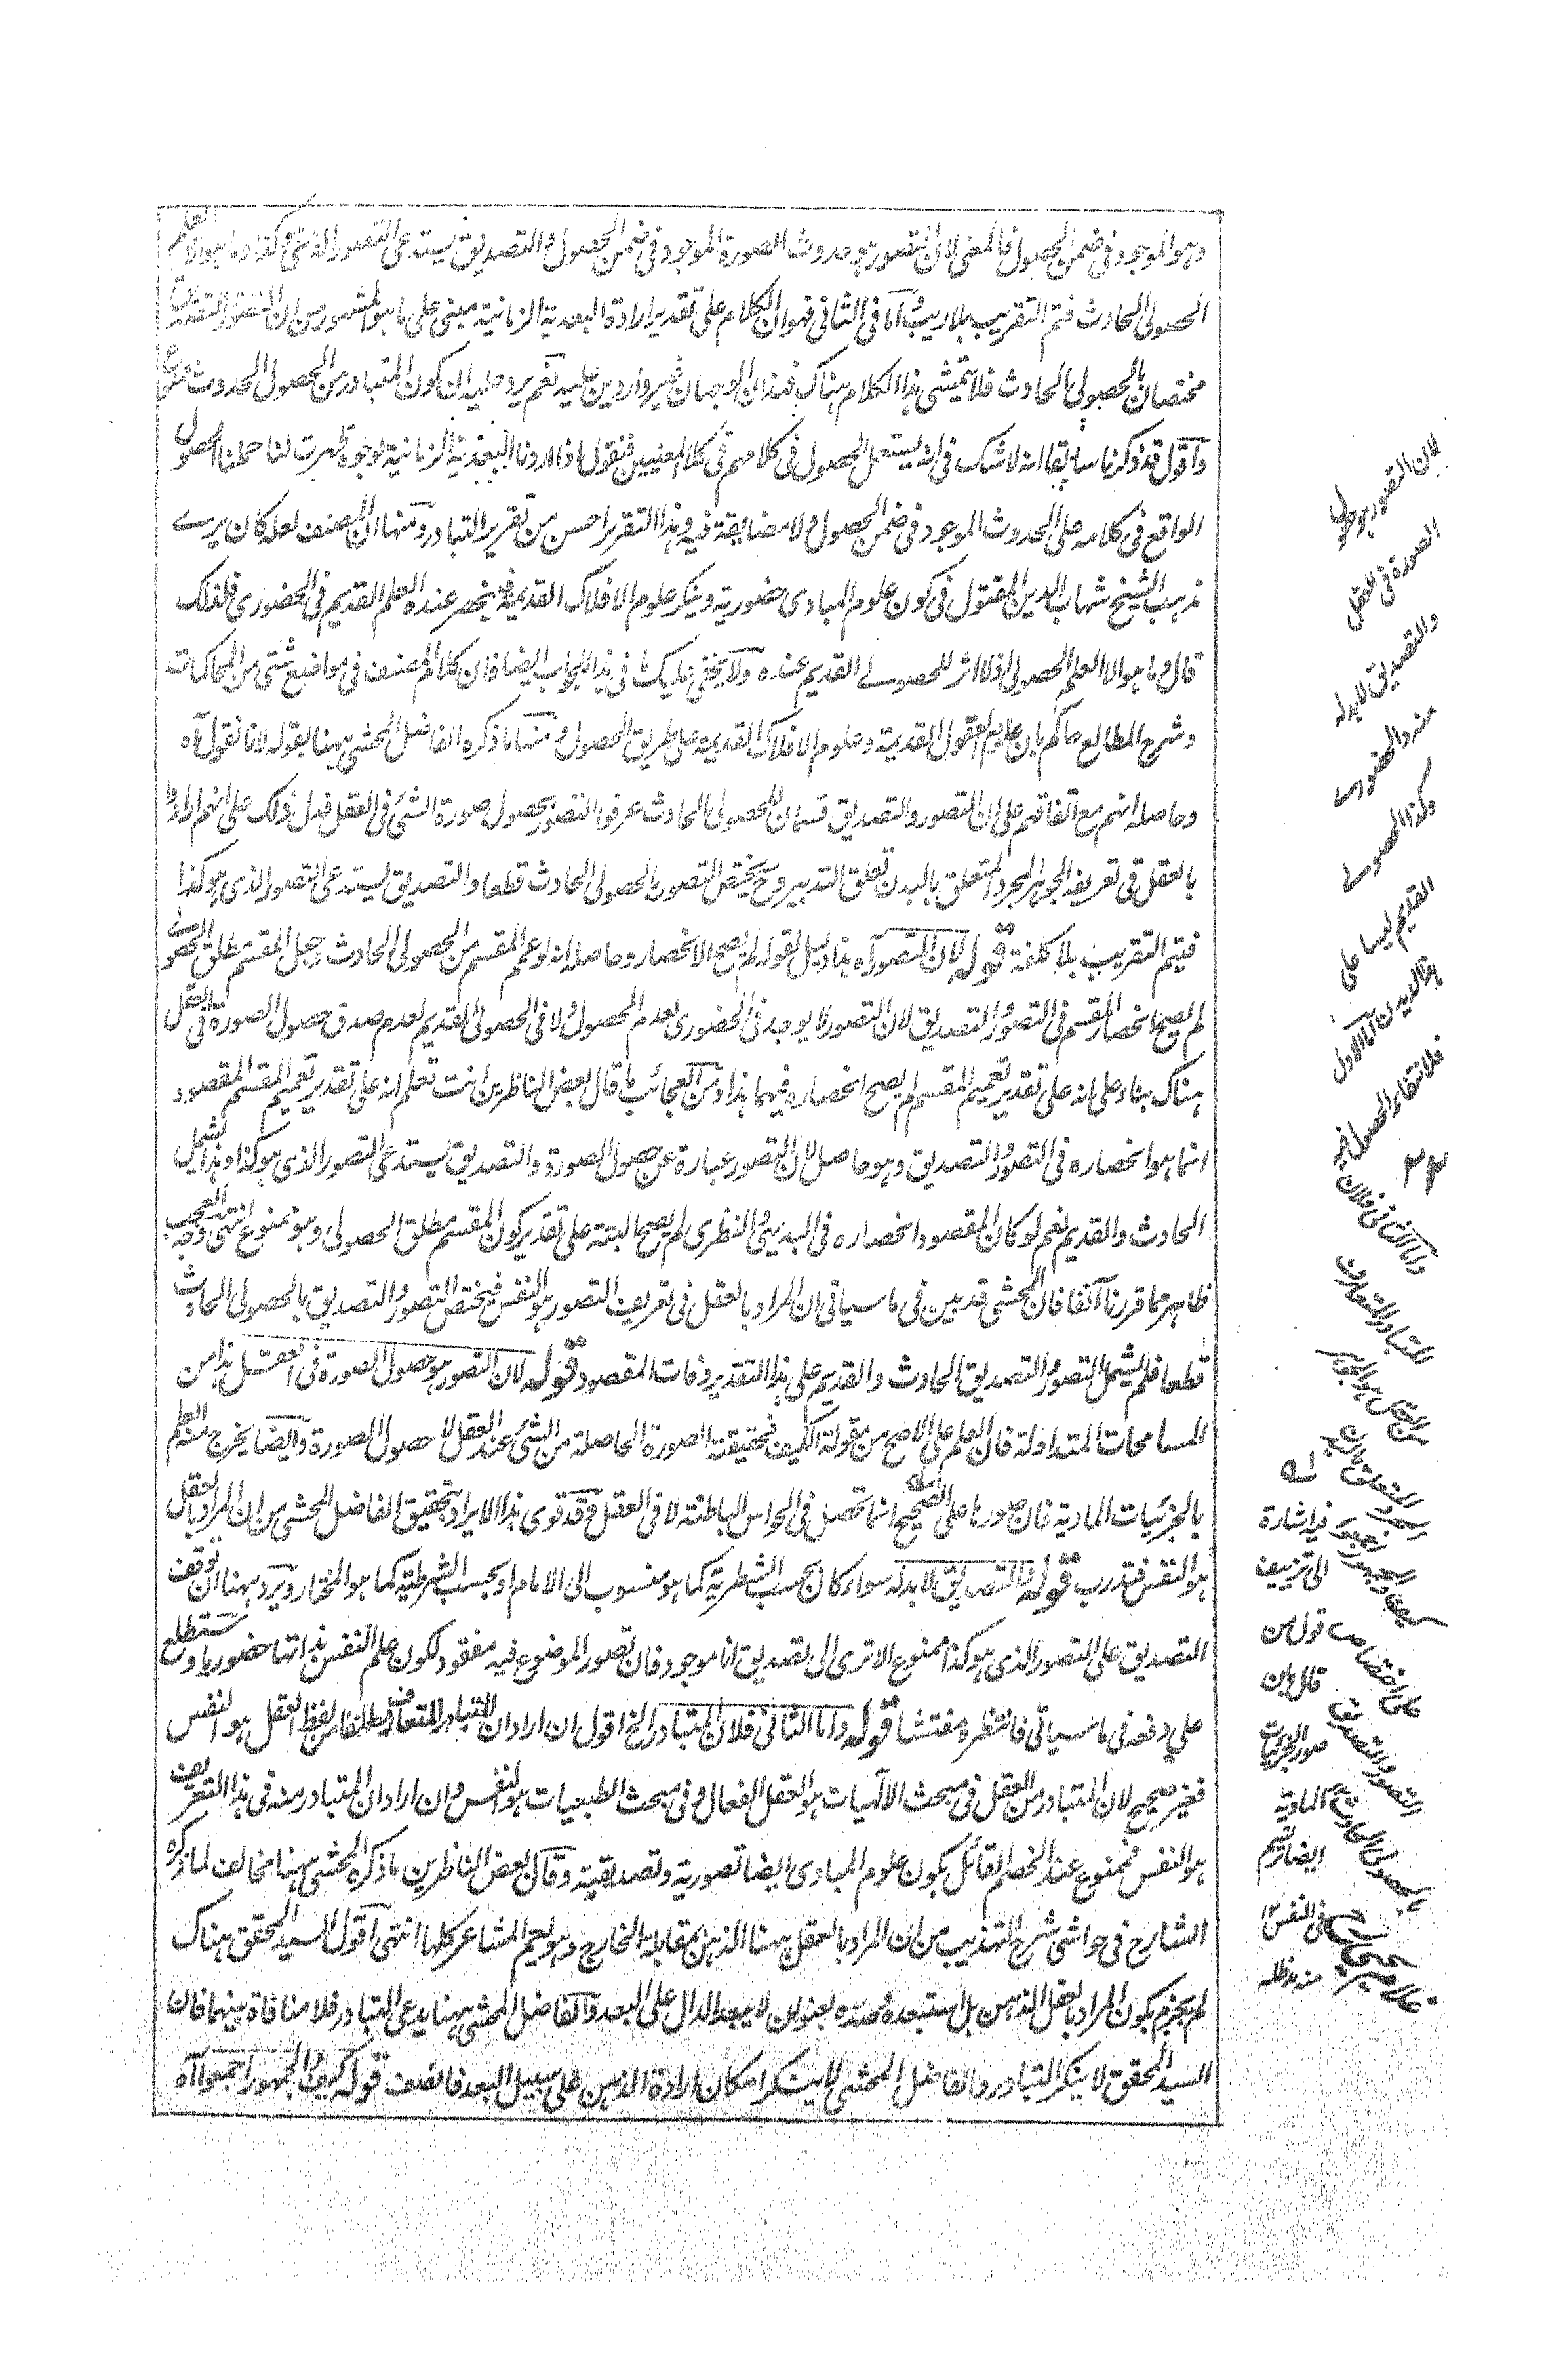 وهو الموجود فى ضمن الحصول فالمعنى لان التصور هو حدوث الصورة الموجود فى ضمن الحصول والتصديق يستدعى التصور الذى هو كذا وما هو الا العلم
الحصولى الحادث فتم التقريب بلا ريب واما فى الثانى فهو ان الكلام على تقدير ارادة البعدية الزمانية مبنى على ما هو المشهور من ان التصور والتصديق
مختصان بالحصولى الحادث فلا يتمشى هذا الكلام هناك فهذان الوجهان غير واردين عليه نعم يرد عليه ان كون المتبادر من الحصول الحدوث ممنوع
واقول قد ذكرنا سابقا انه لا شك فى انه يستعمل الحصول فى كلامهم فى كلا المعنيين فنقول اذا اردنا البعدية الزمانية لوجوه ظهرت لنا حملنا الحصول
الواقع فى كلامه على الحدوث الموجود فى ضمن الحصول ولا مضايقة فيه وهذا التقرير احسن من تقرير التبادر ومنها ان المصنف لعله كان يرى
مذهب الشيخ شهاب الدين المقتول فى كون علوم المبادى حضورية وينكر علوم الافلاك القديمة فينحصر عنده العلم القديم فى الحضورى فلذلك
قال وما هو الا العلم الحصولى اذ لا اثر للحصولى القديم عنده ولا يخفى عليك ما فى هذا الجواب ايضا فان كلام المصنف فى مواضع شتى من المحاكمات
وشرح المطالع حاكم بان علوم العقول القديمة وعلوم الافلاك القديمة على طريق الحصول ومنها ما ذكره الفاضل المحشى ههنا بقوله لانا نقول آه
وحاصله انهم مع اتفاقهم على ان التصور والتصديق قسمان للحصولى الحادث عرفوا التصور بحصول صورة الشئ فى العقل فدل ذلك على انهم ارادوا
بالعقل فى تعريفه الجوهر المجرد المتعلق بالبدن تعلق التدبير وح يختص التصور بالحصولى الحادث قطعا والتصديق يستدعى التصور الذى هو كذا
فيتم التقريب بلا كلفة قوله لان التصور آه هذا دليل لقوله لم يصح الانحصار وحاصله انه لو عمم المقسم من الحصولى الحادث وجعل المقسم مطلق الحصولى
لم يصح انحصار المقسم فى التصور والتصديق لان التصور لا يوجد فى الحضورى لعدم الحصول ولا فى الحصولى القديم لعدم صدق حصول الصورة فى العقل
هناك بناء على انه على تقدير تعميم المقسم لم يصح انحصاره فيهما هذا ومن العجائب ما قال بعض الناظرين انت تعلم انه على تقدير تعميم المقسم المقصود
انما هو انحصاره فى التصور والتصديق وهو حاصل لان التصور عبارة عن حصول الصورة والتصديق يستدعى التصور الذى هو كذا وهذا يشمل
الحادث والقديم نعم لو كان المقصود انحصاره فى البديهى والنظرى لم يصح البتة على تقدير كون المقسم مطلق الحصولى وهو ممنوع انتهى وجه العجب
ظاهر مما قررنا آنفا فان المحشى قد بين فى ما سياتى ان المراد بالعقل فى تعريف التصور هو النفس فيختص التصور والتصديق بالحصولى الحادث
قطعا فلم يشمل التصور والتصديق الحادث والقديم على هذا التقدير وفات المقصود قوله لان التصور هو حصول الصورة فى العقل هذا من
المسامحات المتداولة فان العلم على الاصح من مقولة الكيف فحقيقته الصورة الحاصلة من الشئ عند العقل لا حصول الصورة وايضا يخرج منه العلم
بالجزئيات المادية فان صورها على الصحيح انما تحصل فى الحواس الباطنة لا فى العقل وقد قوى هذا الايراد بتحقيق الفاضل المحشى من ان المراد بالعقل
هو النفس فتدرب قوله والتصديق لا بدله سواء كان بحسب الشطرية كما هو منسوب الى الامام او بحسب الشرطية كما هو المختار ويرد ههنا ان توقف
التصديق على التصور الذى هو كذا ممنوع الا ترى الى تصديق انا موجود فان تصور الموضوع فيه مفقود لكون علم النفس بذاتها حضوريا وستطلع
على دفعه فى ما سياتى فانتظره مفتشا قوله واما الثانى فلان المتبادر الخ اقول ان اراد ان المتبادر المتعارف مطلقا من لفظ العقل هو النفس
فغير صحيح لان المتبادر من العقل فى مبحث الالهيات هو العقل الفعال وفى مبحث الطبعيات هو النفس وان اراد ان المتبادر منه فى هذا التعريف
هو النفس فممنوع عند الخصم القائل بكون علوم المبادى ايضا تصورية وتصديقية وقال بعض الناظرين ما ذكره المحشى ههنا مخالف لما ذكره
الشارح فى حواشى شرح التهذيب من ان المراد بالعقل ههنا الذهن بمقابلة الخارج وهو يعم المشاعر كلها انتهى اقول السيد المحقق هناك
لم يجزم بكون المراد بالعقل الذهن بل استبعده وصدره بعنوان لا يبعد الدال على البعد والفاضل المحشى ههنا يدعى التبادر فلا منافاة بينهما فان
السيد المحقق لا ينكر التبادر والفاضل المحشى لا ينكر امكان ارادة الذهن على سبيل البعد فانصف قوله كيف والجمهور اجمعوا آه
لان التصور هو حصول
الصورة فى العقل
والتصديق لا بد له
منه والحضورى
وكذا الحصولى
القديم ليسا على
هذا الديدن اما الاول
فلانتفاء الحصول فيه
واما الثانى فلان
المتبادر المتعارف
من العقل هو الجوهر
المجرد المتعلق بالبدن
كيف والجمهور اجمعوا
على اختصاص
التصور والتصديق
بالحصولى الحادث
غلام يحيى بهارى
٣٣
له
فيه اشارة
الى تزييف
قول من
قال بان
صور الجزئيات
المادية
ايضا ترتسم
فى النفس
منه مد ظله